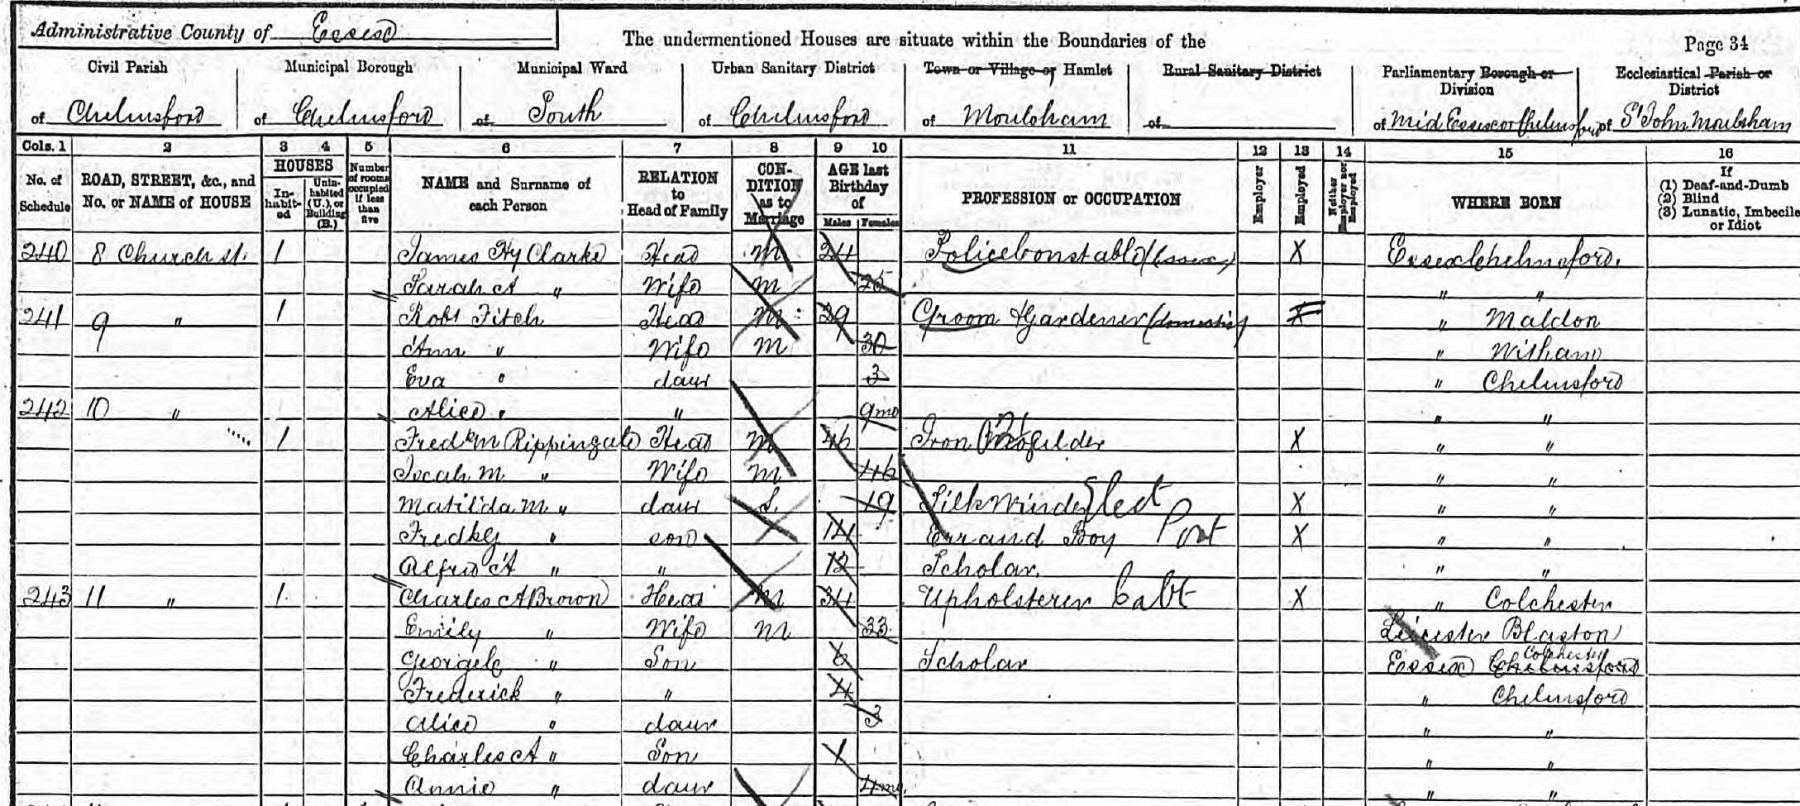 Administrative County of Essex
The undermentioned Houses are situate within the Boundaries of the
Page 34
Civil Parish of Chelmsford
Municipal Borough of Chelmsford
Municipal Ward of South
Urban Sanitary District of Chelmsford
Town or Village or Hamlet of Moulsham
Rural Sanitary District of
Parliamentary Borough or Division of Mid Essex or Chelmsford
Ecclesiastical Parish or District of St John Moulsham
Cols. 1 2 3 4 5 6 7 8 9 10 11 12 13 14 15 16
No. of Schedule
ROAD, STREET, &c., and No. or NAME of HOUSE
HOUSES
In-habit-ed
Unin-habited (U.), or Building (B.)
Number of rooms occupied if less than five
NAME and Surname of each Person
RELATION to Head of Family
CON-DITION as to Marriage
AGE last Birthday of
Males Females
PROFESSION or OCCUPATION
Employer
Employed
Neither Employer nor Employed
WHERE BORN
If
(1) Deaf-and-Dumb
(2) Blind
(3) Lunatic, Imbecile or Idiot
240 8 Church St. 1 James Hy Clarke Head M 24 Police Constable (Essex) X Essex Chelmsford.
Sarah A " Wife M 25 " "
241 9 " 1 Robt Fitch Head M 29 Groom & Gardener (Domestic) X " Maldon
Ann " Wife M 30 " Witham
Eva " daur 3 " Chelmsford
242 10 " Alice " " 9mo " "
1 Fredk M Rippingale Head M 46 Iron X " "
M. " Wife M 46 " "
Matilda M " daur S. 19 Silk Winder Elect X " "
Fredk G " son 14 Errand Boy Port X " "
Alfred A " " 12 Scholar. " "
243 11 " 1. Charles A Brown Head M 34 Upholsterer Cabt X " Colchester
Emily " Wife M 33 Leicester Blaston
George C " Son 6 Scholar Essex Chelmsford Colchester
Frederick " " 4 " Chelmsford
Alice " daur 3 " "
Charles A " Son 1 " "
Annie " daur 4mo. " "